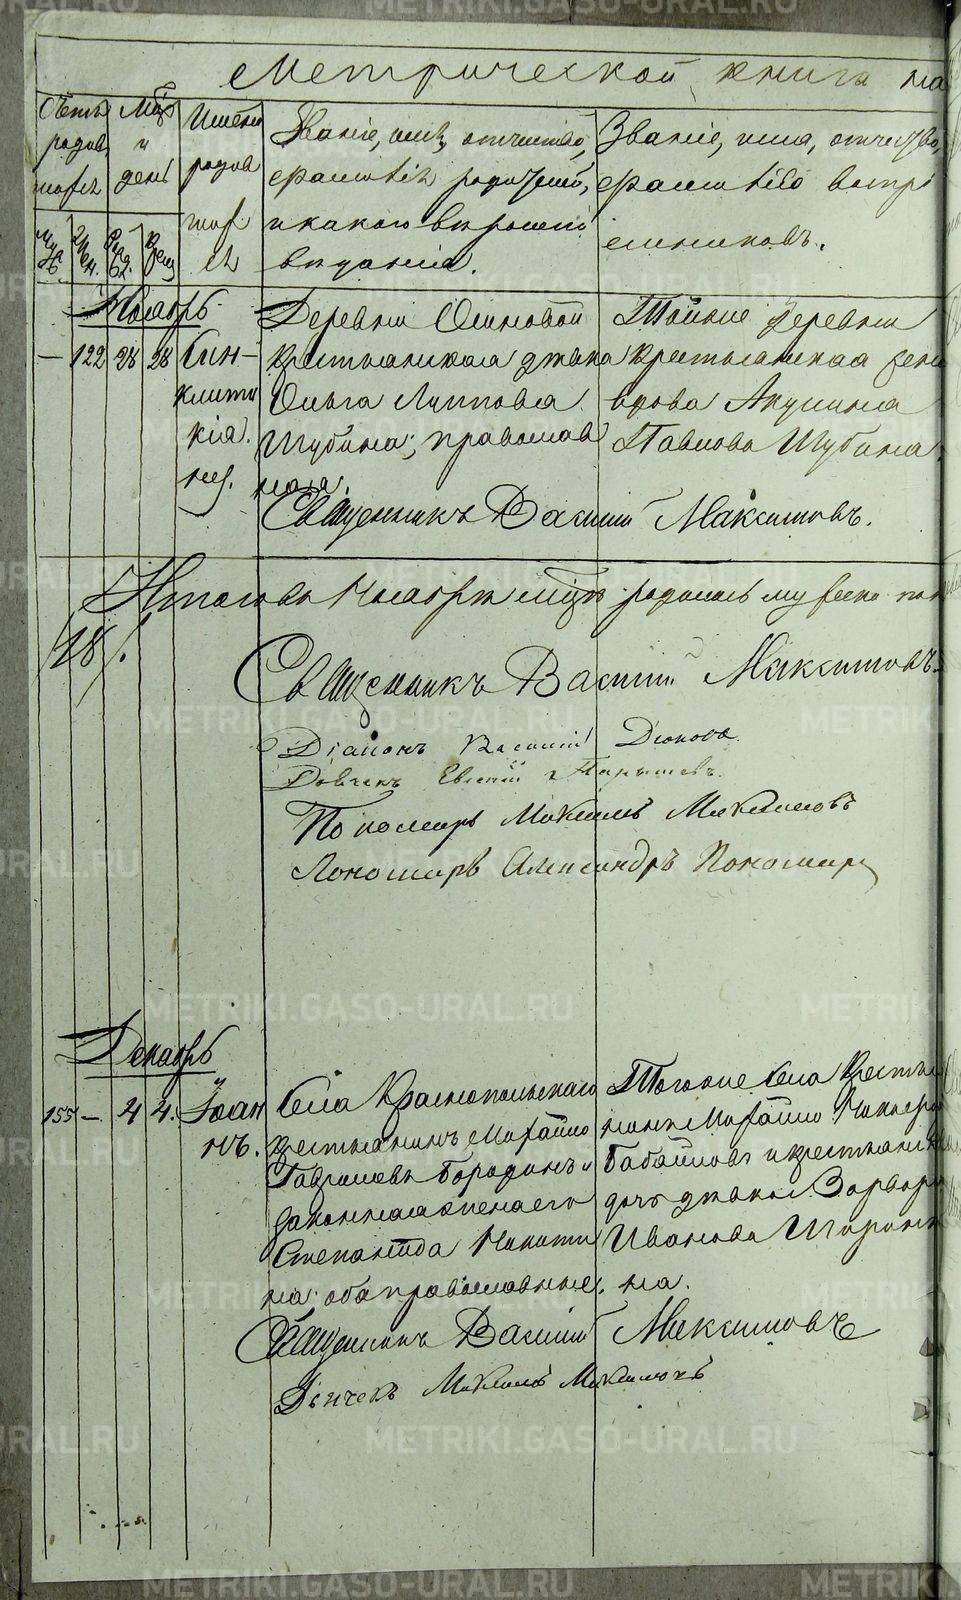 Метрической книги на
Счетъ родив шихъ
Мцъ и день
Имена родив ших
Званіе, имя, отчество, фамилія родителей, и какого вѣроисповѣданія.
Званіе, имя, отчество, фамилія воспріемниковъ.
Ноябрь
— 122 28 28 Син-
клити
кія.
Деревни Осиновой
крестьянская дѣвка
Ольга Луппова
Шубина; православ
ная.
Тойже деревни
крестьянская
вдова Акулина
Павлова Шубина.
Священникъ Василій Максимовъ.
Итого въ Ноябрѣ мцѣ родилось муж. пола
/18/.
Священникъ Василій Максимовъ.
Діаконъ Василій
Дьячекъ Евгеній
Пономарь Максимовъ
Пономарь Александръ Пономарев
Декабрь
155 — 4 4. Іоан
нъ.
Села Краснопольскаго
крестьянинъ Михайло
Гаврилов Бородинъ и
законная жена его
Степанида Никити
на; оба православные.
Тогоже села кресть
янинъ Михайло
Бабайловъ и крестьянск
дочь дѣвка Варвара
Иванова Ширинки
на.
Священникъ Василій Максимовъ
Дьячекъ
METRIKI.GASO-URAL.RU